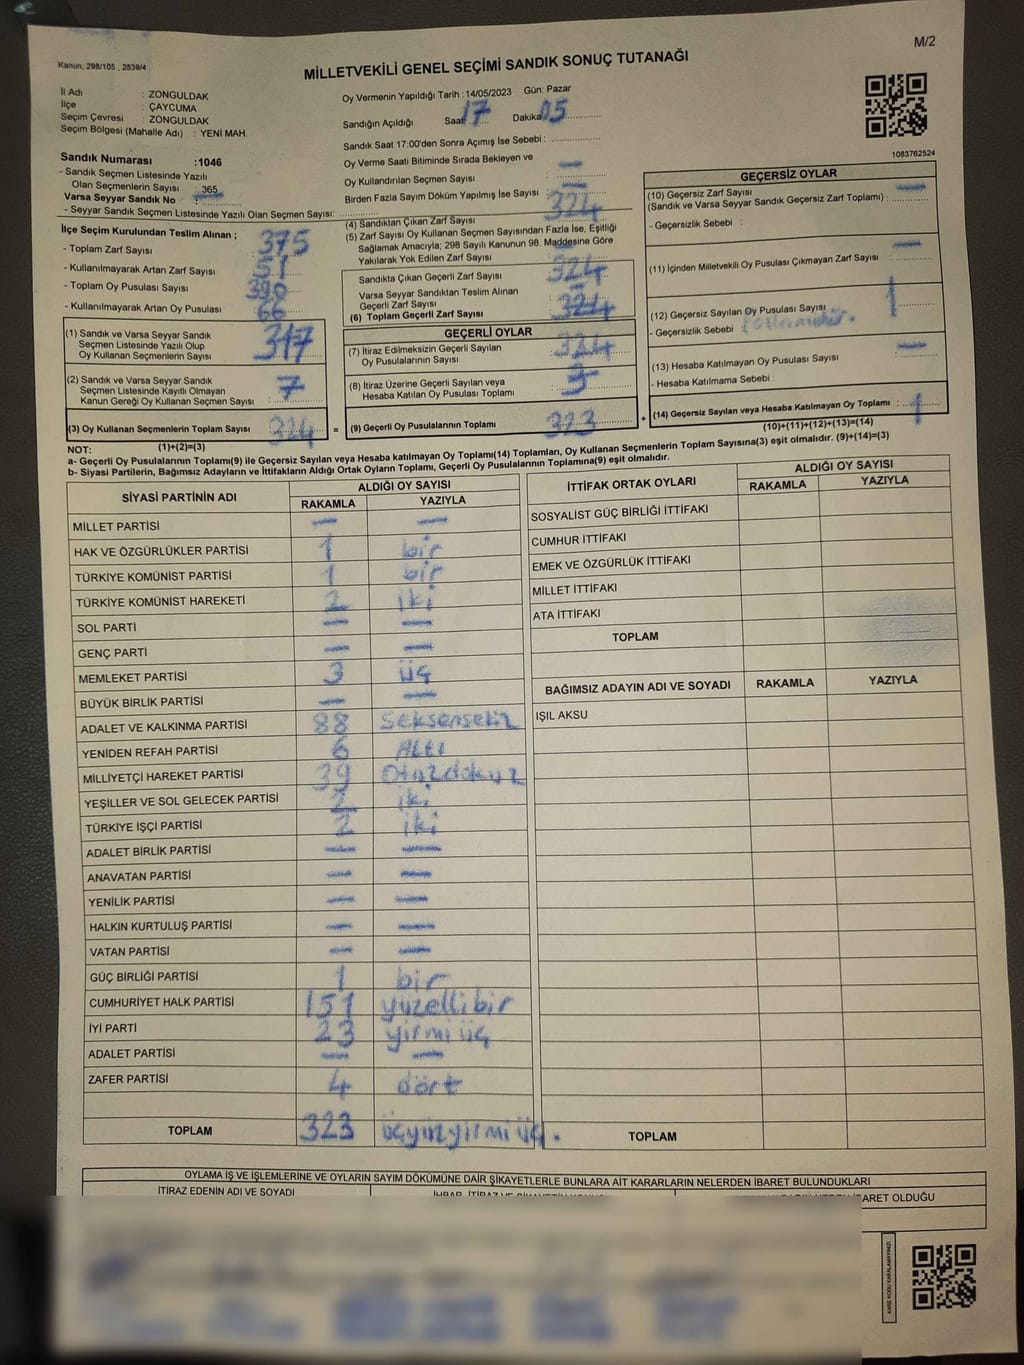 M/2
Kanun, 298/105 , 2839/4
MİLLETVEKİLİ GENEL SEÇİMİ SANDIK SONUÇ TUTANAĞI
İl Adı : ZONGULDAK
İlçe : ÇAYCUMA
Seçim Çevresi : ZONGULDAK
Seçim Bölgesi (Mahalle Adı) : YENİ MAH.
Sandık Numarası :1046
- Sandık Seçmen Listesinde Yazılı
Olan Seçmenlerin Sayısı : 365
Varsa Seyyar Sandık No —
- Seyyar Sandık Seçmen Listesinde Yazılı Olan Seçmen Sayısı:
Oy Vermenin Yapıldığı Tarih :14/05/2023 Gün: Pazar
Sandığın Açıldığı Saat 17 Dakika 05
Sandık Saat 17:00'den Sonra Açımış İse Sebebi :
Oy Verme Saati Bitiminde Sırada Bekleyen ve
Oy Kullandırılan Seçmen Sayısı —
Birden Fazla Sayım Döküm Yapılmış İse Sayısı —
1083762524
İlçe Seçim Kurulundan Teslim Alınan ;
- Toplam Zarf Sayısı : 375
- Kullanılmayarak Artan Zarf Sayısı : 51
- Toplam Oy Pusulası Sayısı : 390
- Kullanılmayarak Artan Oy Pusulası : 66
(1) Sandık ve Varsa Seyyar Sandık
Seçmen Listesinde Yazılı Olup
Oy Kullanan Seçmenlerin Sayısı : 317
(2) Sandık ve Varsa Seyyar Sandık
Seçmen Listesinde Kayıtlı Olmayan
Kanun Gereği Oy Kullanan Seçmen Sayısı : 7
(3) Oy Kullanan Seçmenlerin Toplam Sayısı : 324
(1)+(2)=(3)
(4) Sandıktan Çıkan Zarf Sayısı : 324
(5) Zarf Sayısı Oy Kullanan Seçmen Sayısından Fazla İse, Eşitliği
Sağlamak Amacıyla; 298 Sayılı Kanunun 98. Maddesine Göre
Yakılarak Yok Edilen Zarf Sayısı : —
Sandıkta Çıkan Geçerli Zarf Sayısı : 324
Varsa Seyyar Sandıktan Teslim Alınan
Geçerli Zarf Sayısı : —
(6) Toplam Geçerli Zarf Sayısı : 324
GEÇERLİ OYLAR
(7) İtiraz Edilmeksizin Geçerli Sayılan
Oy Pusulalarının Sayısı
(8) İtiraz Üzerine Geçerli Sayılan veya
Hesaba Katılan Oy Pusulası Toplamı
= (9) Geçerli Oy Pusulalarının Toplamı : 323
GEÇERSİZ OYLAR
(10) Geçersiz Zarf Sayısı
(Sandık ve Varsa Seyyar Sandık Geçersiz Zarf Toplamı) : —
- Geçersizlik Sebebi :
(11) İçinden Milletvekili Oy Pusulası Çıkmayan Zarf Sayısı : —
(12) Geçersiz Sayılan Oy Pusulası Sayısı : 1
- Geçersizlik Sebebi
(13) Hesaba Katılmayan Oy Pusulası Sayısı : —
- Hesaba Katılmama Sebebi :
+ (14) Geçersiz Sayılan veya Hesaba Katılmayan Oy Toplamı : 1
(10)+(11)+(12)+(13)=(14)
NOT:
a- Geçerli Oy Pusulalarının Toplamı(9) ile Geçersiz Sayılan veya Hesaba katılmayan Oy Toplamı(14) Toplamları, Oy Kullanan Seçmenlerin Toplam Sayısına(3) eşit olmalıdır. (9)+(14)=(3)
b- Siyasi Partilerin, Bağımsız Adayların ve İttifakların Aldığı Ortak Oyların Toplamı, Geçerli Oy Pusulalarının Toplamına(9) eşit olmalıdır.
SİYASİ PARTİNİN ADI ALDIĞI OY SAYISI
RAKAMLA YAZIYLA
MİLLET PARTİSİ — —
HAK VE ÖZGÜRLÜKLER PARTİSİ 1 bir
TÜRKİYE KOMÜNİST PARTİSİ 1 bir
TÜRKİYE KOMÜNİST HAREKETİ 2 iki
SOL PARTİ — —
GENÇ PARTİ — —
MEMLEKET PARTİSİ 3 üç
BÜYÜK BİRLİK PARTİSİ — —
ADALET VE KALKINMA PARTİSİ 88 Seksensekiz
YENİDEN REFAH PARTİSİ 6 Altı
MİLLİYETÇİ HAREKET PARTİSİ 39 Otuzdokuz
YEŞİLLER VE SOL GELECEK PARTİSİ 2 iki
TÜRKİYE İŞÇİ PARTİSİ 2 iki
ADALET BİRLİK PARTİSİ — —
ANAVATAN PARTİSİ — —
YENİLİK PARTİSİ — —
HALKIN KURTULUŞ PARTİSİ — —
VATAN PARTİSİ — —
GÜÇ BİRLİĞİ PARTİSİ 1 bir
CUMHURİYET HALK PARTİSİ 151 yüzellibir
İYİ PARTİ 23 yirmiüç
ADALET PARTİSİ — —
ZAFER PARTİSİ 4 dört
TOPLAM 323 üçyüzyirmiüç.
İTTİFAK ORTAK OYLARI ALDIĞI OY SAYISI
RAKAMLA YAZIYLA
SOSYALİST GÜÇ BİRLİĞİ İTTİFAKI
CUMHUR İTTİFAKI
EMEK VE ÖZGÜRLÜK İTTİFAKI
MİLLET İTTİFAKI
ATA İTTİFAKI
TOPLAM
BAĞIMSIZ ADAYIN ADI VE SOYADI RAKAMLA YAZIYLA
IŞIL AKSU
TOPLAM
OYLAMA İŞ VE İŞLEMLERİNE VE OYLARIN SAYIM DÖKÜMÜNE DAİR ŞİKAYETLERLE BUNLARA AİT KARARLARIN NELERDEN İBARET BULUNDUKLARI
İTİRAZ EDENİN ADI VE SOYADI
İBARET OLDUĞU